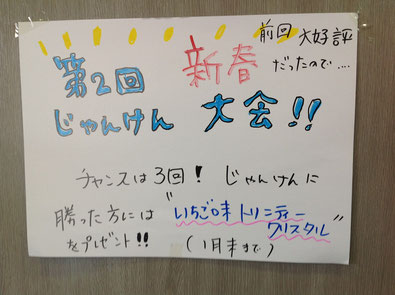 前回 大好評
だったので....
第2回 新春
じゃんけん 大会!!
チャンスは3回! じゃんけんに
勝った方には "いちご味トリニティー
クリスタル"
をプレゼント!! (1月末まで)